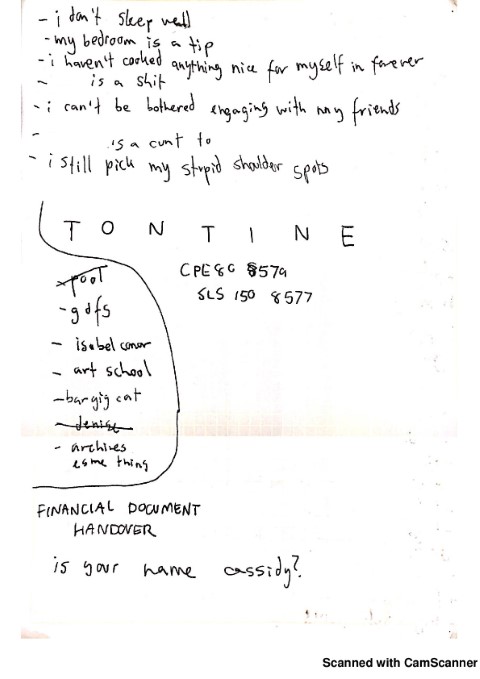 - i don't sleep well
- my bedroom is a tip
- i haven't cooked anything nice for myself in forever
- is a shit
- i can't be bothered engaging with my friends
- is a cunt to
- i still pick my stupid shoulder spots
T O N T I N E
CPE80 8579
SLS 150 8577
- gdfs
- isobel conor
- art school
- bargig cat
- denise
- archives
esme thing
FINANCIAL DOCUMENT
HANDOVER
is your name cassidy?
Scanned with CamScanner